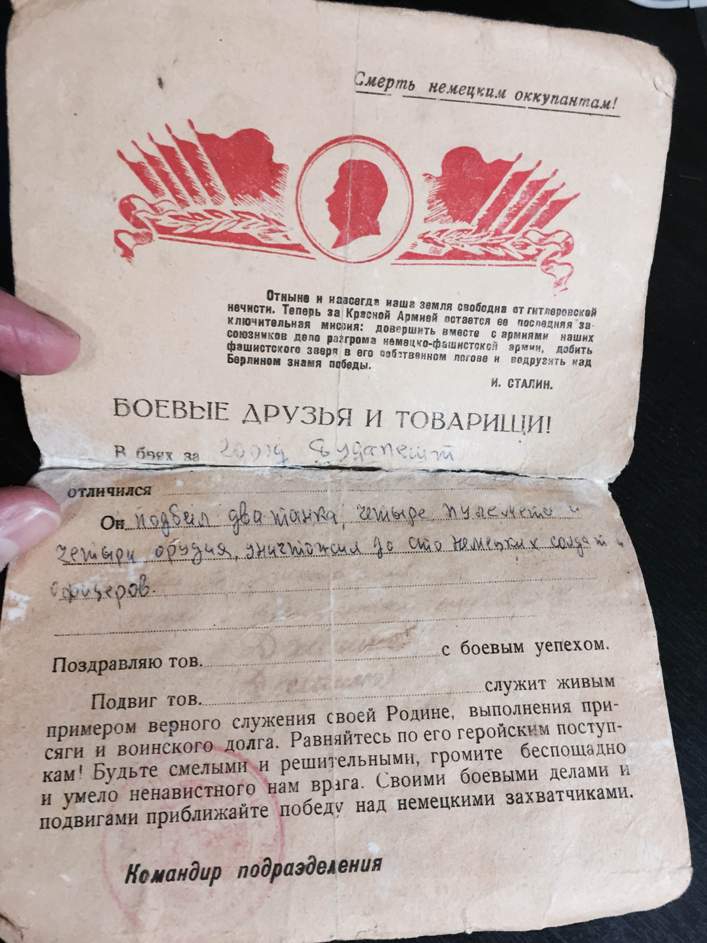 Смерть немецким оккупантам!
Отныне и навсегда наша земля свободна от гитлеровской
нечисти. Теперь за Красной Армией остается ее последняя за-
ключительная миссия: довершить вместе с армиями наших
союзников дело разгрома немецко-фашистской армии, добить
фашистского зверя в его собственном логове и водрузить над
Берлином знамя победы.
И. СТАЛИН.
БОЕВЫЕ ДРУЗЬЯ И ТОВАРИЩИ!
В боях за город Будапешт
отличился
Он подбил два танка, четыре пулемета и
четыри орудия, уничтожил до сто немецких солдат и
офицеров.
Поздравляю тов. с боевым успехом.
Подвиг тов. служит живым
примером верного служения своей Родине, выполнения при-
сяги и воинского долга. Равняйтесь по его геройским поступ-
кам! Будьте смелыми и решительными, громите беспощадно
и умело ненавистного нам врага. Своими боевыми делами и
подвигами приближайте победу над немецкими захватчиками.
Командир подразделения